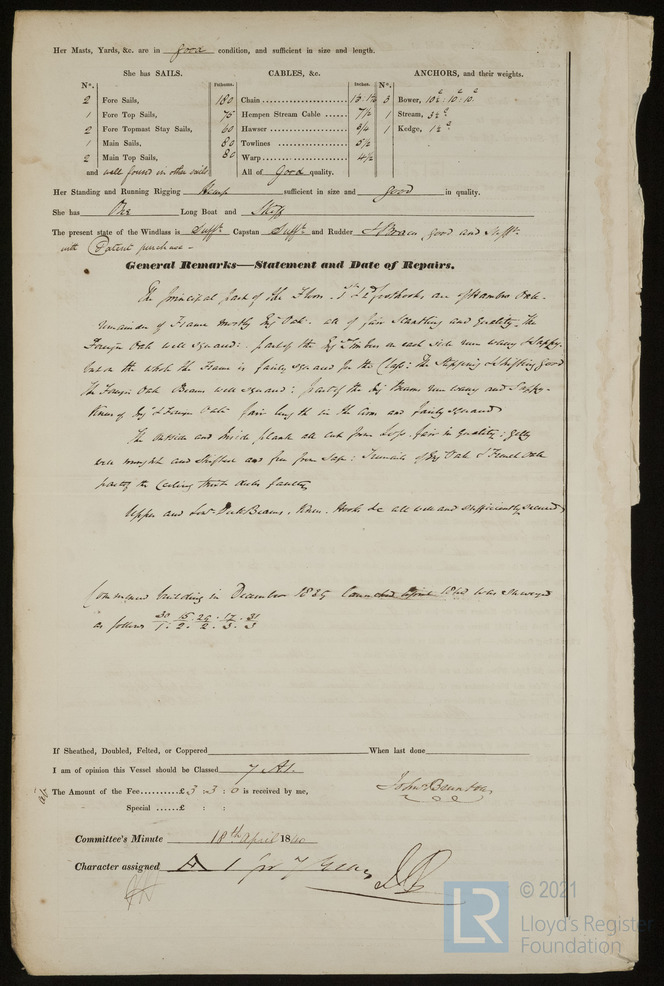 Her Masts, Yards, &c. are in good condition, and sufficient in size and length.
She has SAILS. CABLES, &c. ANCHORS, and their weights.
N°. Fathoms. Inches. N°.
2 Fore Sails, 180 Chain 3 Bower,
1 Fore Top Sails, 75 Hempen Stream Cable 7½ 1 Stream,
2 Fore Topmast Stay Sails, 60 Hawser 1 Kedge,
1 Main Sails, 80 Towlines 5½
2 Main Top Sails, 80 Warp 4½
and well found in other sails All of Good quality.
Her Standing and Running Rigging Hemp sufficient in size and good in quality.
She has One Long Boat and Skiff
The present state of the Windlass is Sufft. Capstan Suffts and Rudder good and Sufft.
with Patent purchase
General Remarks—Statement and Date of Repairs.
The principal part of the Floors are of Hambro Oak.
remainder of Frame mostly Eng Oak. all of fair Scantling and quality. The
Foreign Oak well squared: part of the Eng Timber on each side
the whole the Frame is fairly squared for the Class: The Stepping & Shifting good
The Foreign Oak Beams well squared: part of the Eng Beams and Sappy.
Knees of Eng & Foreign Oak fair length in the arm and fairly squared
The outside and inside plank all cut from fair in quality:
well wrought and Shifted and free from Sap: Treenails of Eng Oak & French Oak
part of the Ceiling
Upper and Lowr Deck Beams, Knees. Hooks &c all well and sufficiently secured
Commenced building in December 1839 Launched 1840 was Surveyed
as follows 30/1. 15/2. 29/2. 17/3. 31/3
If Sheathed, Doubled, Felted, or Coppered When last done
I am of opinion this Vessel should be Classed 7 A1.
The Amount of the Fee £3:3:0 is received by me, John Brunton
Special £ : :
Committee's Minute 18th April 1840
Character assigned A 1 for 7 Years
LR © 2021
Lloyd's Register
Foundation